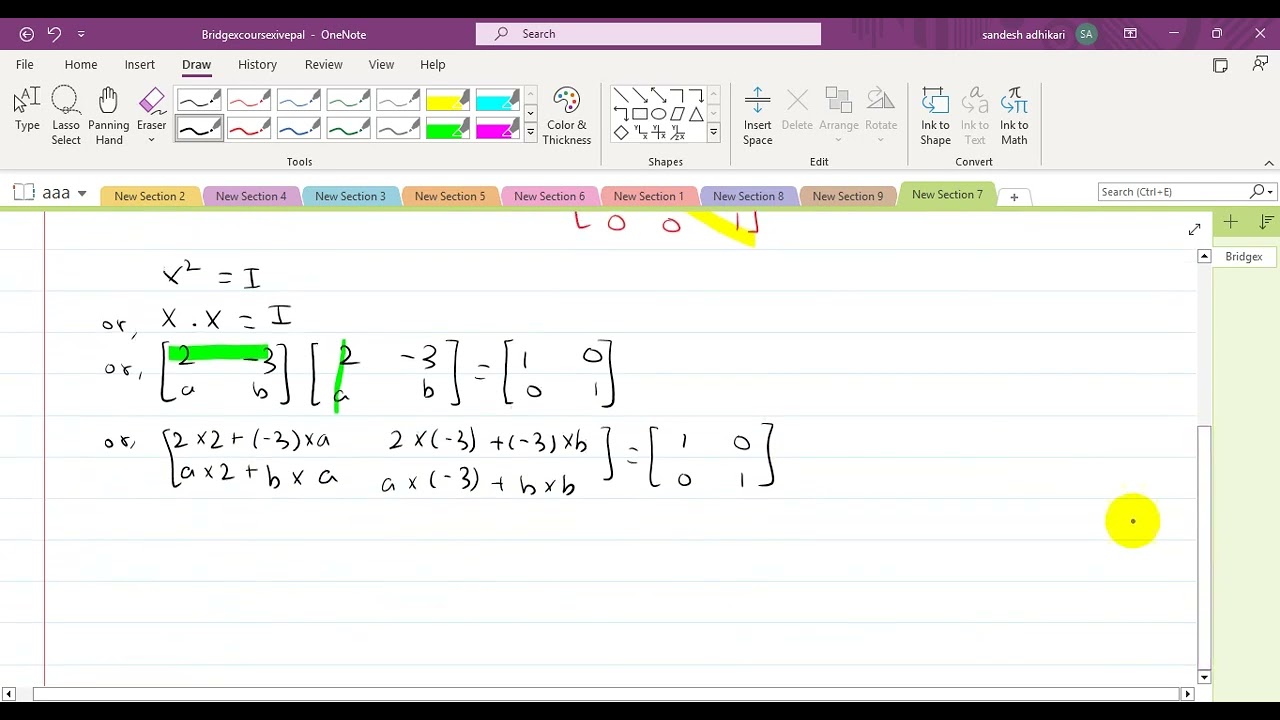 Bridgexcoursexivepal - OneNote
Search
sandesh adhikari SA
File Home Insert Draw History Review View Help
Type Lasso Select Panning Hand Eraser Color & Thickness Insert Space Delete Arrange Rotate Ink to Shape Ink to Text Ink to Math
Tools Shapes Edit Convert
aaa New Section 2 New Section 4 New Section 3 New Section 5 New Section 6 New Section 1 New Section 8 New Section 9 New Section 7 Search (Ctrl+E)
Bridgex
[ 0 0 1 ]
x² = I
or, x . x = I
or, [2 -3] [2 -3] = [1 0]
[a b] [a b] [0 1]
or, [2×2+(-3)×a 2×(-3)+(-3)×b] = [1 0]
[a×2+b×a a×(-3)+b×b] [0 1]